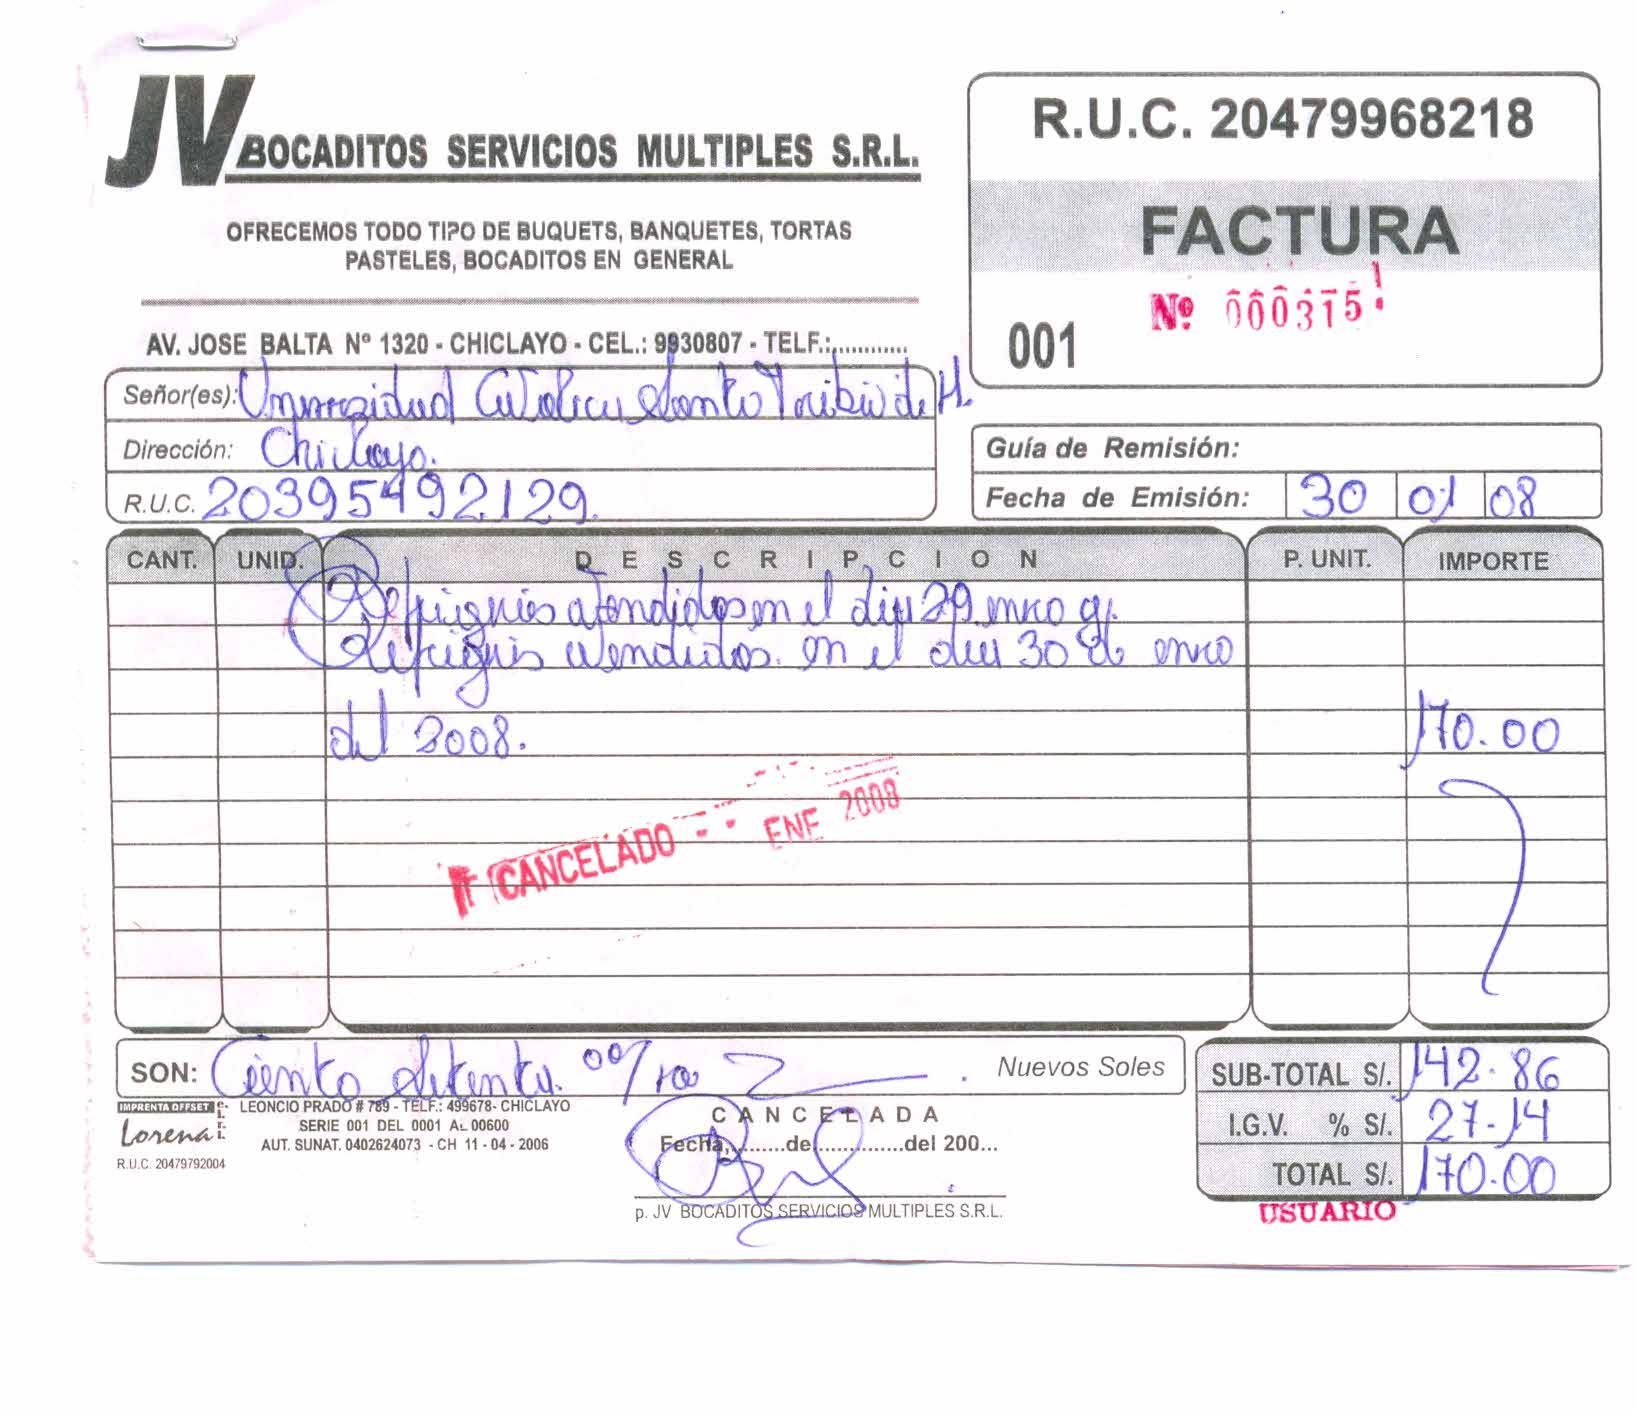 JV BOCADITOS SERVICIOS MULTIPLES S.R.L.
OFRECEMOS TODO TIPO DE BUQUETS, BANQUETES, TORTAS
PASTELES, BOCADITOS EN GENERAL
AV. JOSE BALTA Nº 1320 - CHICLAYO - CEL.: 9930807 - TELF.:............
R.U.C. 20479968218
FACTURA
001 Nº 000315
Señor(es): Universidad Catolica Santo Toribio de M.
Dirección: Chiclayo.
R.U.C. 20395492129
Guía de Remisión:
Fecha de Emisión: 30 01 08
CANT. UNID. DESCRIPCION P. UNIT. IMPORTE
Refrigerios atendidos en el dia 29 enero y
Refrigerios atendidos en el dia 30 de enero
del 2008. 170.00
CANCELADO ENE 2008
SON: Ciento Setenta 00/100 Nuevos Soles
SUB-TOTAL S/. 142.86
I.G.V. % S/. 27.14
TOTAL S/. 170.00
USUARIO
IMPRENTA OFFSET
Lorena
E.I.R.L.
R.U.C. 20479792004
LEONCIO PRADO # 789 - TELF.: 499678- CHICLAYO
SERIE 001 DEL 0001 AL 00600
AUT. SUNAT. 0402624073 - CH 11 - 04 - 2006
CANCELADA
Fecha,........de..............del 200...
p. JV BOCADITOS SERVICIOS MULTIPLES S.R.L.